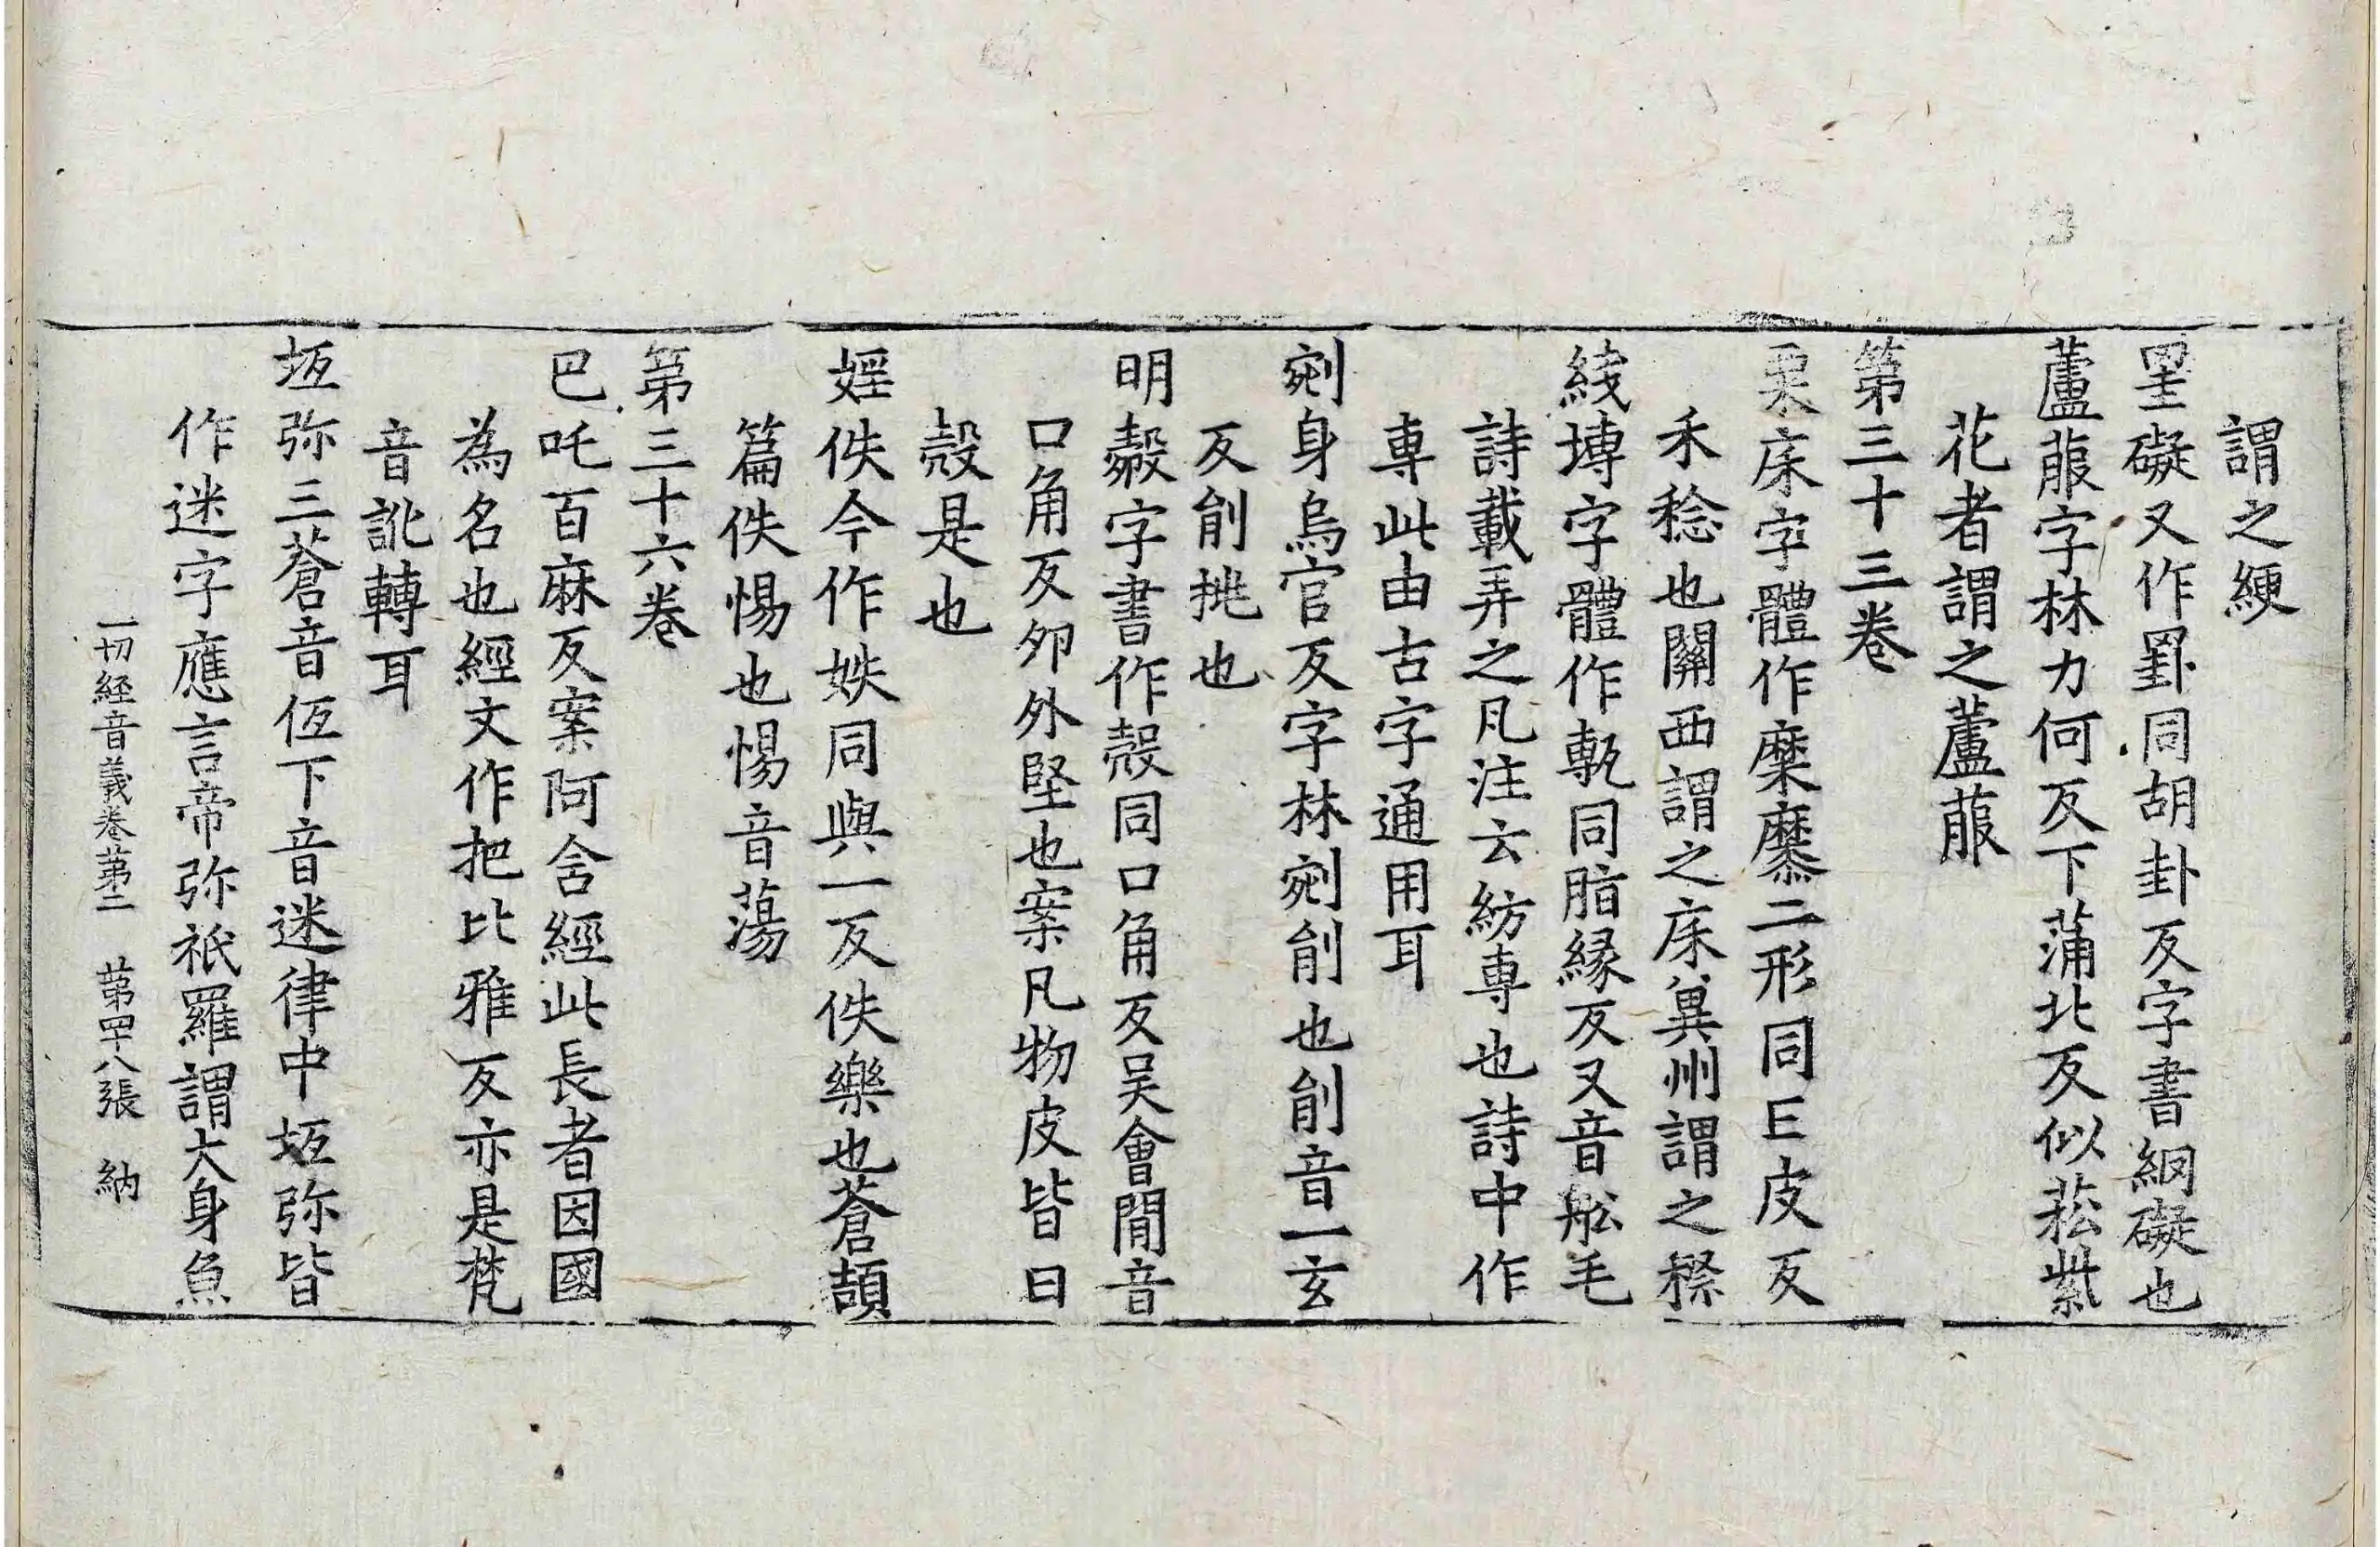 謂之綆
罣礙又作罫同胡卦反字書網礙也
蘆菔字林力何反下蒲北反似菘紫
花者謂之蘆菔
第三十三卷
粟床字體作穈䵚二形同亡皮反
禾稔也關西謂之床冀州謂之穄
綫塼字體作甎同脂緣反又音舩毛
詩載弄之凡注云紡專也詩中作
專此由古字通用耳
剜身烏官反字林剜削也削音一玄
反削挑也
明㲉字書作殼同口角反吴會閒音
口角反夘外堅也案凡物皮皆曰
殼是也
婬佚今作妷同與一反佚樂也蒼頡
篇佚惕也惕音蕩
第三十六卷
巴吒百麻反案阿含經此長者因國
為名也經文作把比雅反亦是梵
音訛轉耳
坘弥三蒼音佢下音迷律中坘弥皆
作迷字應言帝弥祇羅謂大身魚
一切経音義卷苐二　苐罕八張　納